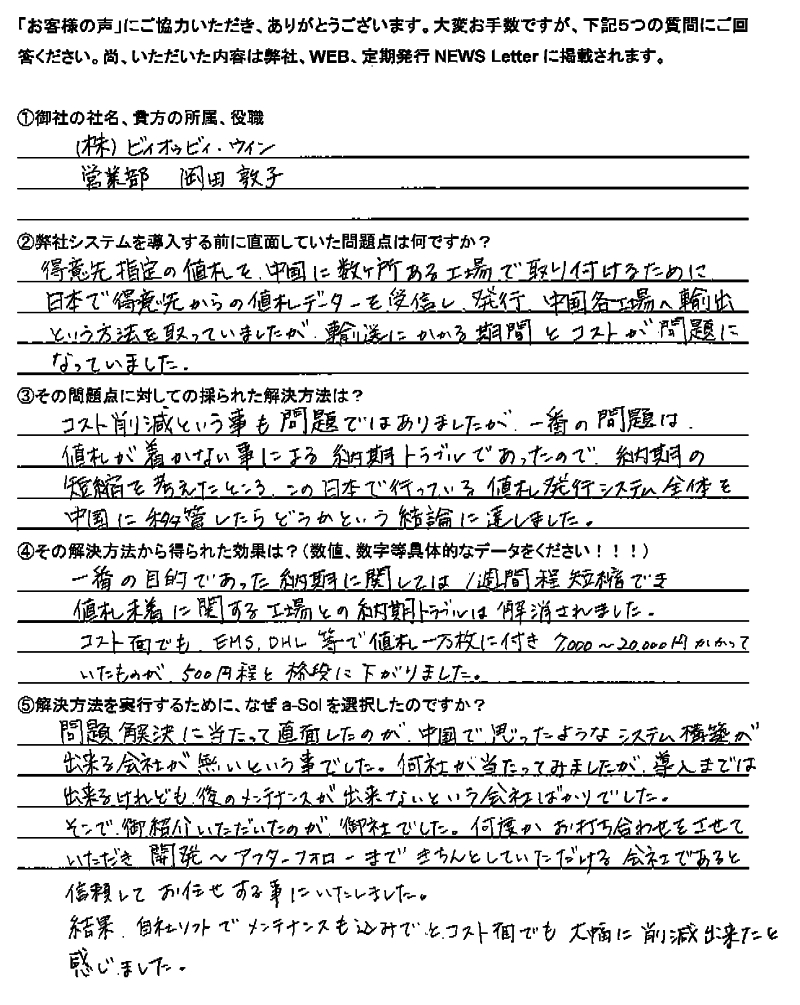 「お客様の声」にご協力いただき、ありがとうございます。大変お手数ですが、下記5つの質問にご回
答ください。尚、いただいた内容は弊社、WEB、定期発行NEWS Letterに掲載されます。
①御社の社名、貴方の所属、役職
(株)ビィオゥビィ・ウィン
営業部 岡田 敦子
②弊社システムを導入する前に直面していた問題点は何ですか?
得意先指定の値札を、中国に数ヶ所ある工場で取り付けるために
日本で得意先からの値札データーを受信し、発行、中国各工場へ輸出
という方法を取っていましたが、輸送にかかる期間とコストが問題に
なっていました。
③その問題点に対しての採られた解決方法は?
コスト削減という事も問題ではありましたが、一番の問題は、
値札が着かない事による納期トラブルであったので、納期の
短縮を考えたところ、この日本で行っている値札発行システム全体を
中国に移管したらどうかという結論に達しました。
④その解決方法から得られた効果は?(数値、数字等具体的なデータをください!!!)
一番の目的であった納期に関しては1週間程短縮でき
値札未着に関する工場との納期トラブルは解消されました。
コスト面でも、EMS、DHL等で値札一万枚に付き7,000~20,000円かかって
いたものが、500円程と格段に下がりました。
⑤解決方法を実行するために、なぜa-Solを選択したのですか?
問題解決に当たって直面したのが、中国で思ったようなシステム構築が
出来る会社が無いという事でした。何社か当たってみましたが、導入までは
出来るけれども、後のメンテナンスが出来ないという会社ばかりでした。
そこで、御紹介いただいたのが、御社でした。何度かお打ち合わせをさせて
いただき開発~アフターフォローまできちんとしていただける会社であると
信頼してお任せする事にいたしました。
結果、自社ソフトでメンテナンスも込みでと、コスト面でも大幅に削減出来たと
感じました。